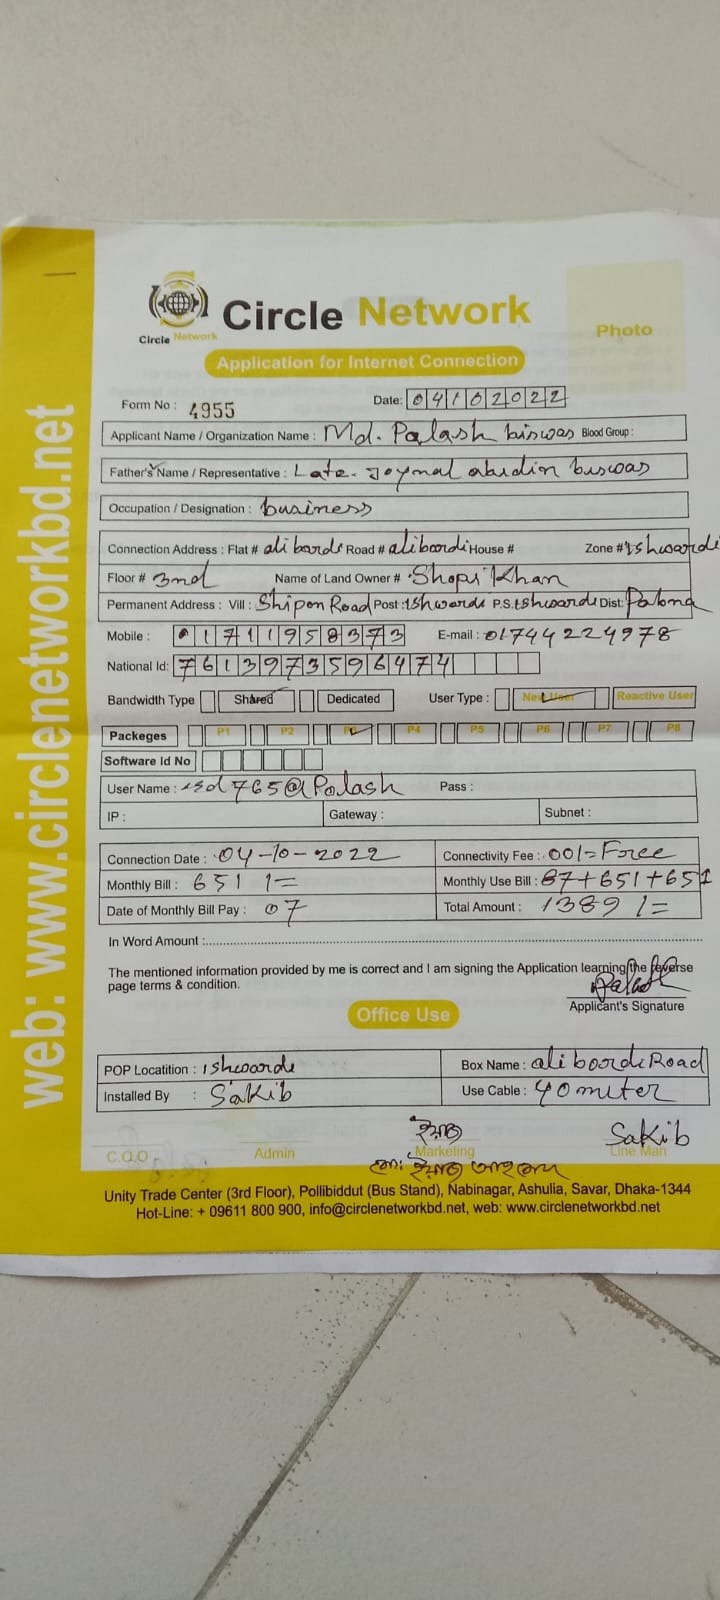 web: www.circlenetworkbd.net
Circle Network
Circle Network
Photo
Application for Internet Connection
Form No : 4955
Date: 04102022
Applicant Name / Organization Name : Md. Palash biswas Blood Group :
Father's Name / Representative : Late. Joynal abidin biswas
Occupation / Designation : business
Connection Address : Flat # ali bordi Road # aliboordi House # Zone # Ishwardi
Floor # 3nd Name of Land Owner # Shopi Khan
Permanent Address : Vill : Shipon Road Post : Ishwardi P.S. Ishwardi Dist: Pabna
Mobile : 01711958373 E-mail : 01744224978
National Id: 7613973596474
Bandwidth Type Shared Dedicated User Type : New User Reactive User
Packeges P1 P2 P3 P4 P5 P6 P7 P8
Software Id No
User Name : isd765@Palash Pass :
IP : Gateway : Subnet :
Connection Date : 04-10-2022 Connectivity Fee : 00/= Free
Monthly Bill : 651 /= Monthly Use Bill : 87+651+651
Date of Monthly Bill Pay : 07 Total Amount : 1389 /=
In Word Amount :
The mentioned information provided by me is correct and I am signing the Application learning the reverse
page terms & condition.
Palash
Applicant's Signature
Office Use
POP Locatition : Ishwardi Box Name : ali boordi Road
Installed By : Sakib Use Cable : 40 miter
Sakib
C.O.O Admin Marketing Line Man
Unity Trade Center (3rd Floor), Pollibiddut (Bus Stand), Nabinagar, Ashulia, Savar, Dhaka-1344
Hot-Line: + 09611 800 900, info@circlenetworkbd.net, web: www.circlenetworkbd.net